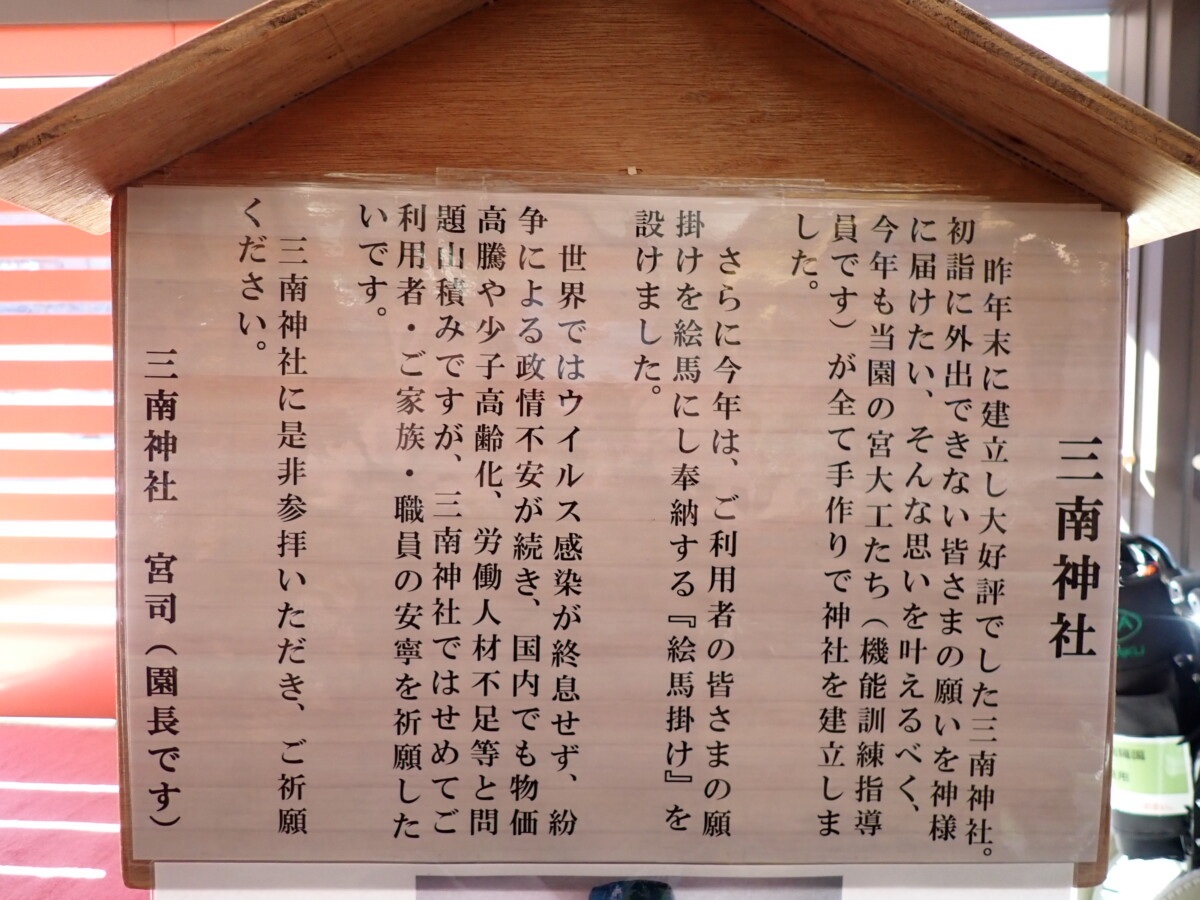 三南神社
昨年末に建立し大好評でした三南神社。
初詣に外出できない皆さまの願いを神様
に届けたい、そんな思いを叶えるべく、
今年も当園の宮大工たち（機能訓練指導
員です）が全て手作りで神社を建立しま
した。
さらに今年は、ご利用者の皆さまの願
掛けを絵馬にし奉納する『絵馬掛け』を
設けました。
世界ではウイルス感染が終息せず、紛
争による政情不安が続き、国内でも物価
高騰や少子高齢化、労働人材不足等と問
題山積みですが、三南神社ではせめてご
利用者・ご家族・職員の安寧を祈願した
いです。
三南神社に是非参拝いただき、ご祈願
ください。
三南神社　宮司（園長です）